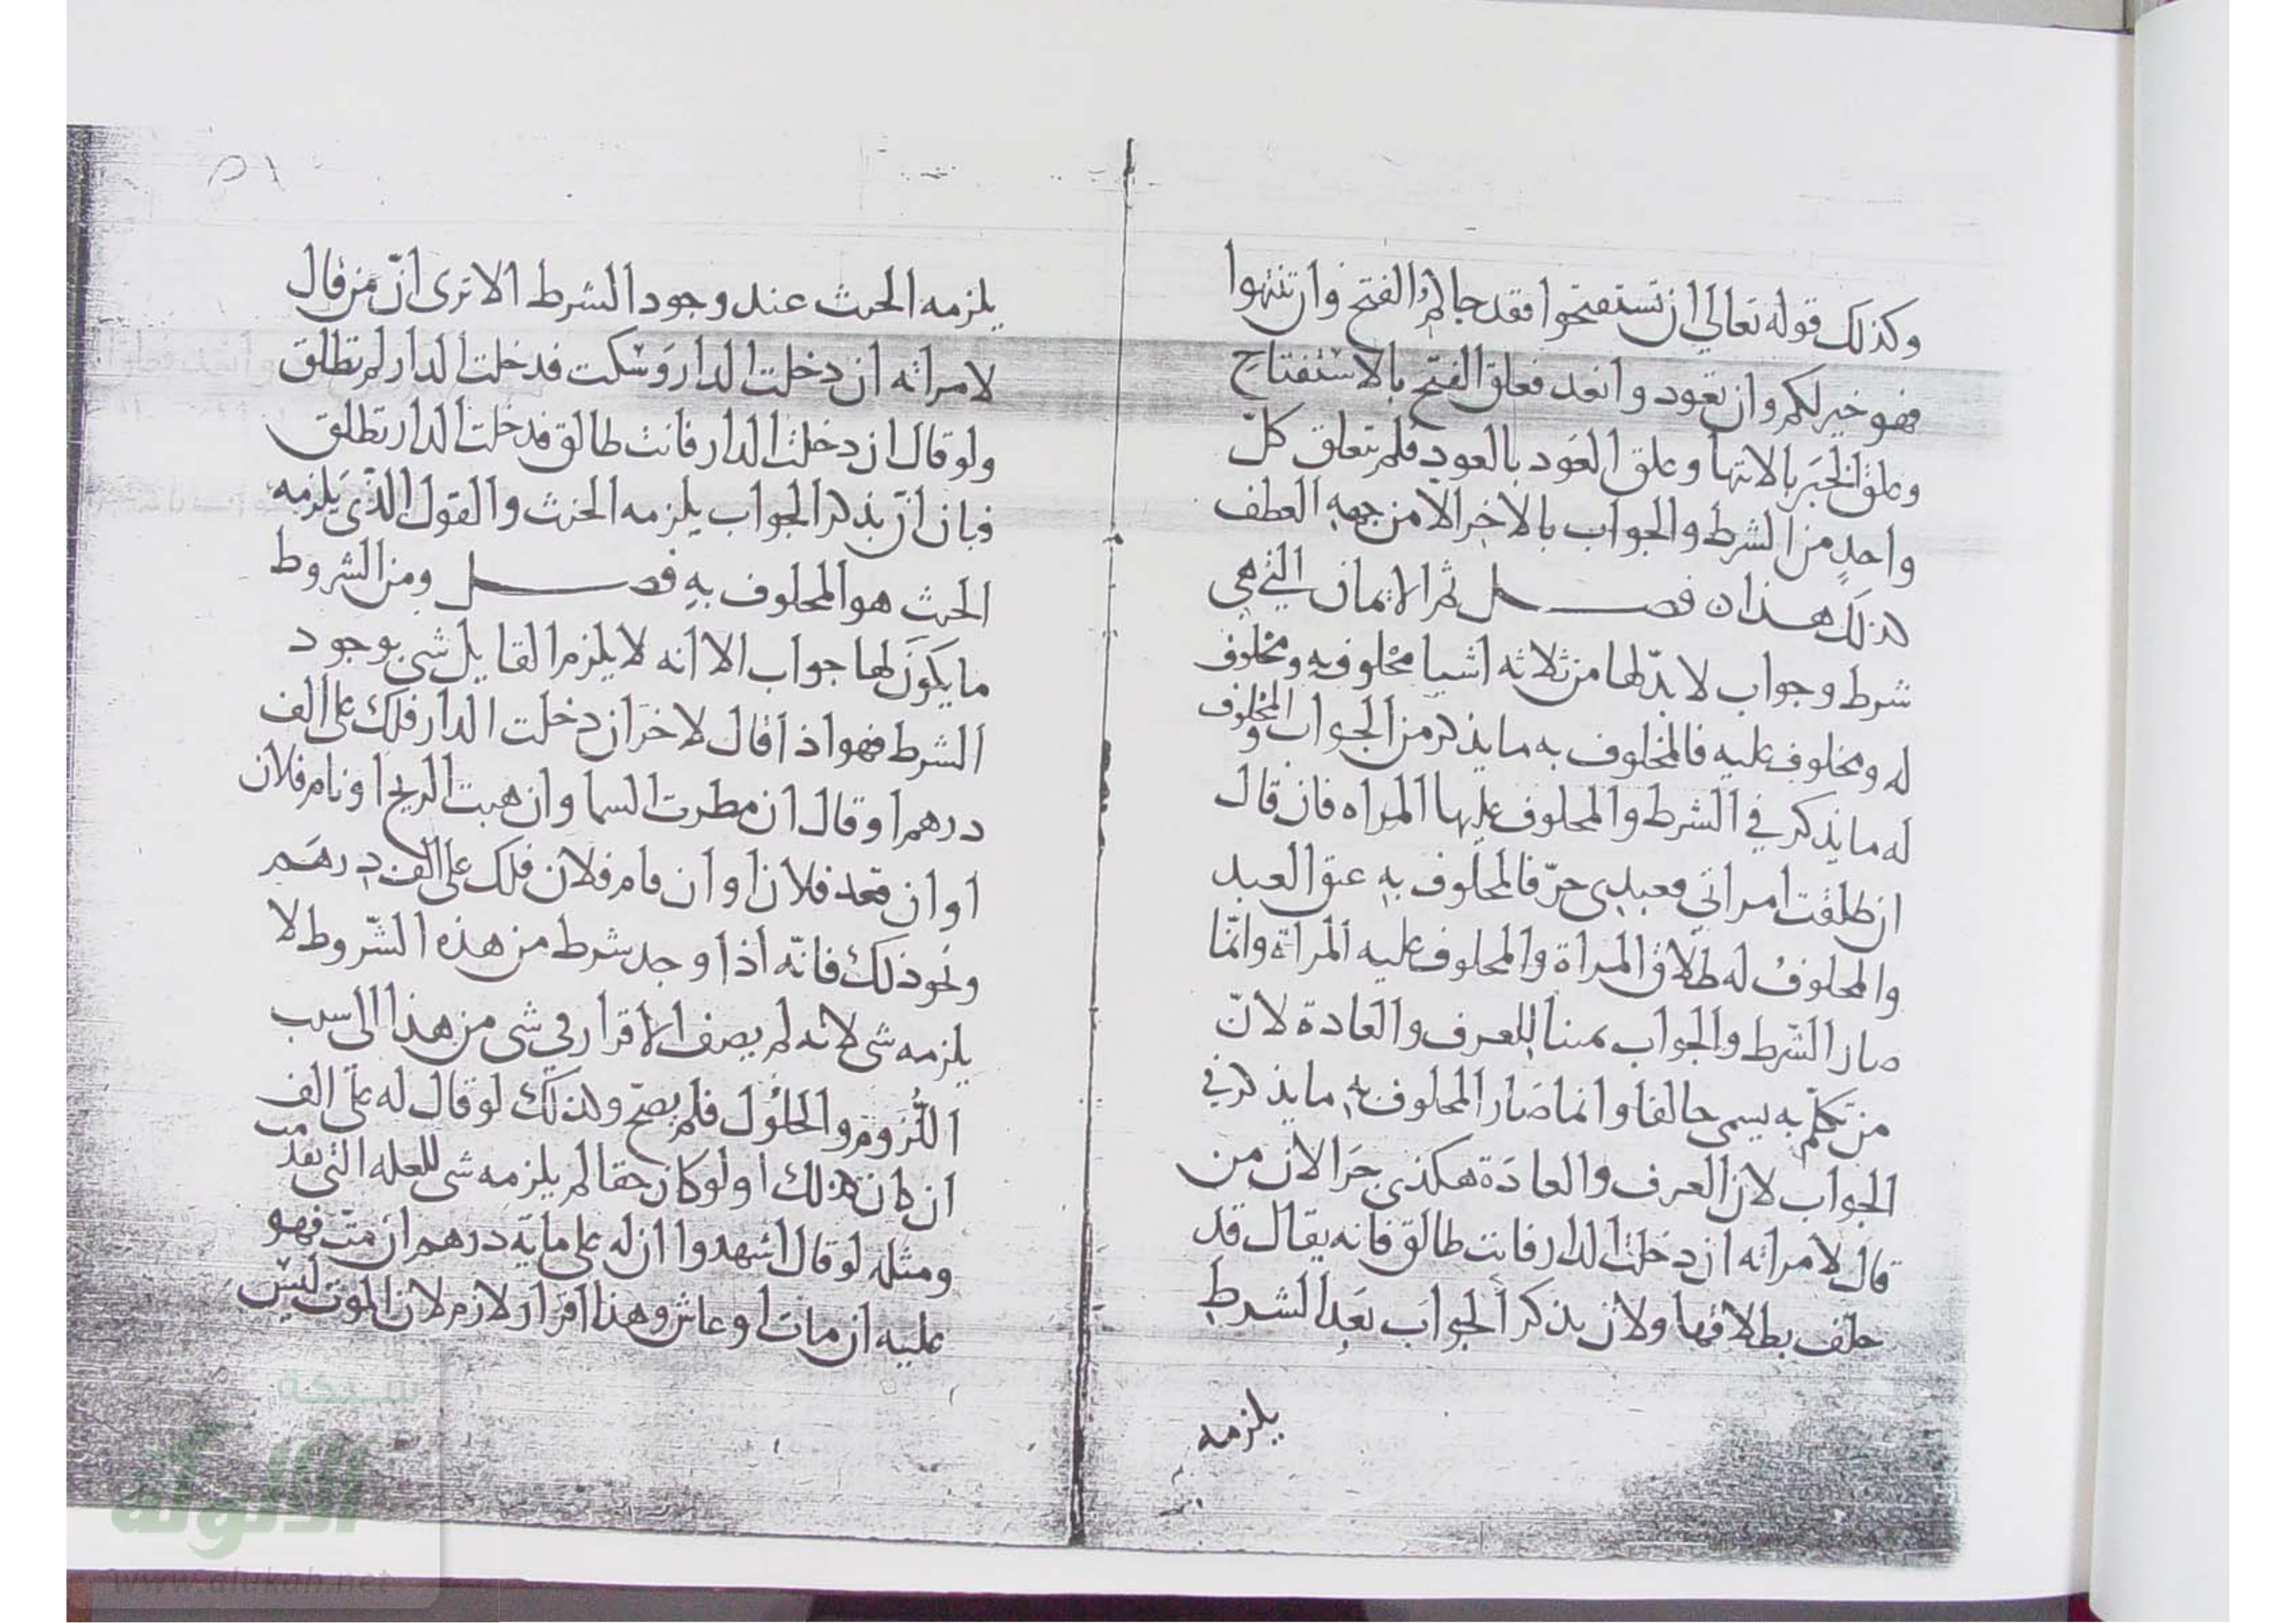 وكذلك قوله تعالي ان تستفتحوا فقد جاكم الفتح وان تنتهوا
فهو خير لكم وان تعودوا نعد فعلق الفتح بالاستفتاح
وعلق الخير بالانتها وعلق العود بالعود فلم يتعلق كل
واحد من الشرط والجواب بالاخر الا من جهه العطف
كذلك هذان فصل ثم الايمان التي هي
شرط وجواب لا بد لها من ثلاثه اشيا محلوف به ومحلوف
له ومحلوف عليه فالمحلوف به ما يذكر من الجواب والمحلوف
له ما يذكر في الشرط والمحلوف عليها المراه فان قال
ان طلقت امراتي فعبدي حرّ فالمحلوف به عتق العبد
والمحلوف له طلاق المراة والمحلوف عليه المراة وانمّا
صار الشرط والجواب يمينا للعرف والعادة لانّ
من تكلم به يسمى حالفا وانما صار المحلوف به ما يذكر في
الجواب لان العرف والعادة هكذى جرا لان من
قال لامراته ان دخلت الدار فانت طالق فانه يقال قد
حلف بطلاقها ولان بذكر الجواب بعد الشرط
يلزمه
٥١
يلزمه الحنث عند وجود الشرط الا ترى انّ من قال
لامراته ان دخلت الدار وسكت فدخلت الدار لم تطلق
ولو قال ان دخلت الدار فانت طالق فدخلت الدار تطلق
فبان انّ بذكر الجواب يلزمه الحنث والقول الذي يلزمه
الحنث هو المحلوف به فصل ومن الشروط
ما يكون لها جواب الا انه لا يلزم القايل شي بوجود
الشرط فهو اذا قال لاخر ان دخلت الدار فلك على الف
درهم او قال ان مطرت السما وان هبت الريح او نام فلان
او ان قعد فلان او ان قام فلان فلك على الف درهم
ونحو ذلك فانّه اذا وجد شرط من هذه الشّروط لا
يلزمه شي لانه لم يصف الاقرار في شي من هذا الى سبب
اللُّزوم والحلُول فلم يصحّ وكذلك لو قال له على الف
ان كان كذلك او لو كان حقا لم يلزمه شي للعله التي تقدمت
ومثله لو قال اشهدوا ان له على مايه درهم ان متّ فهو
عليه ان مات او عاش وهذا اقرار لازم لان الموت ليس
شبكة
الألوكة
www.alukah.net